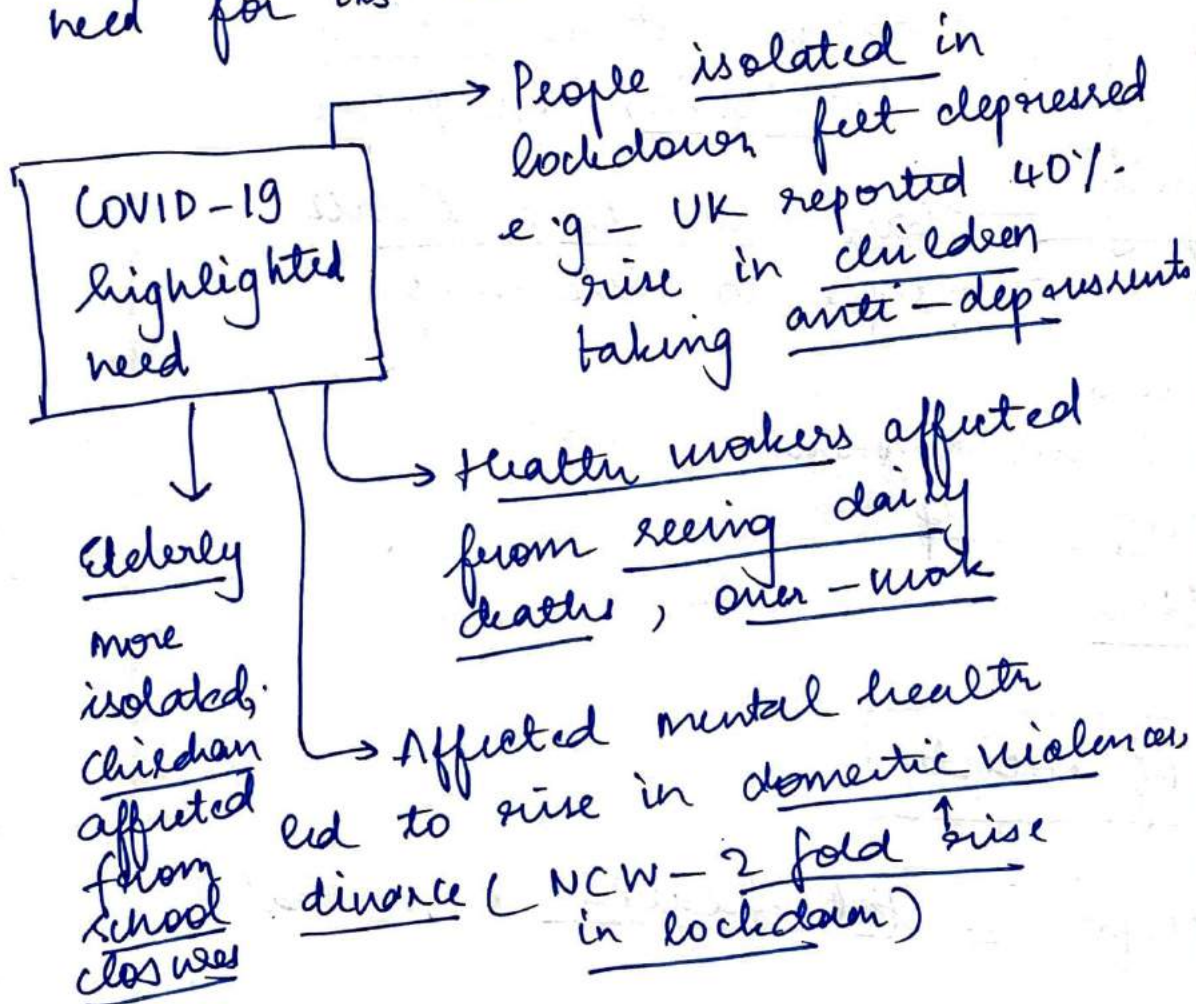 need for
COVID-19
highlighted
need
People isolated in
lockdown felt depressed
e.g - UK reported 40%.
rise in children
taking anti-depressants
Health workers affected
from seeing daily
deaths, over-work
Elderly
more
isolated;
Children
affected
from
school
closures
Affected mental health
led to rise in domestic violence,
divorce (NCW- 2 fold rise
in lockdown)